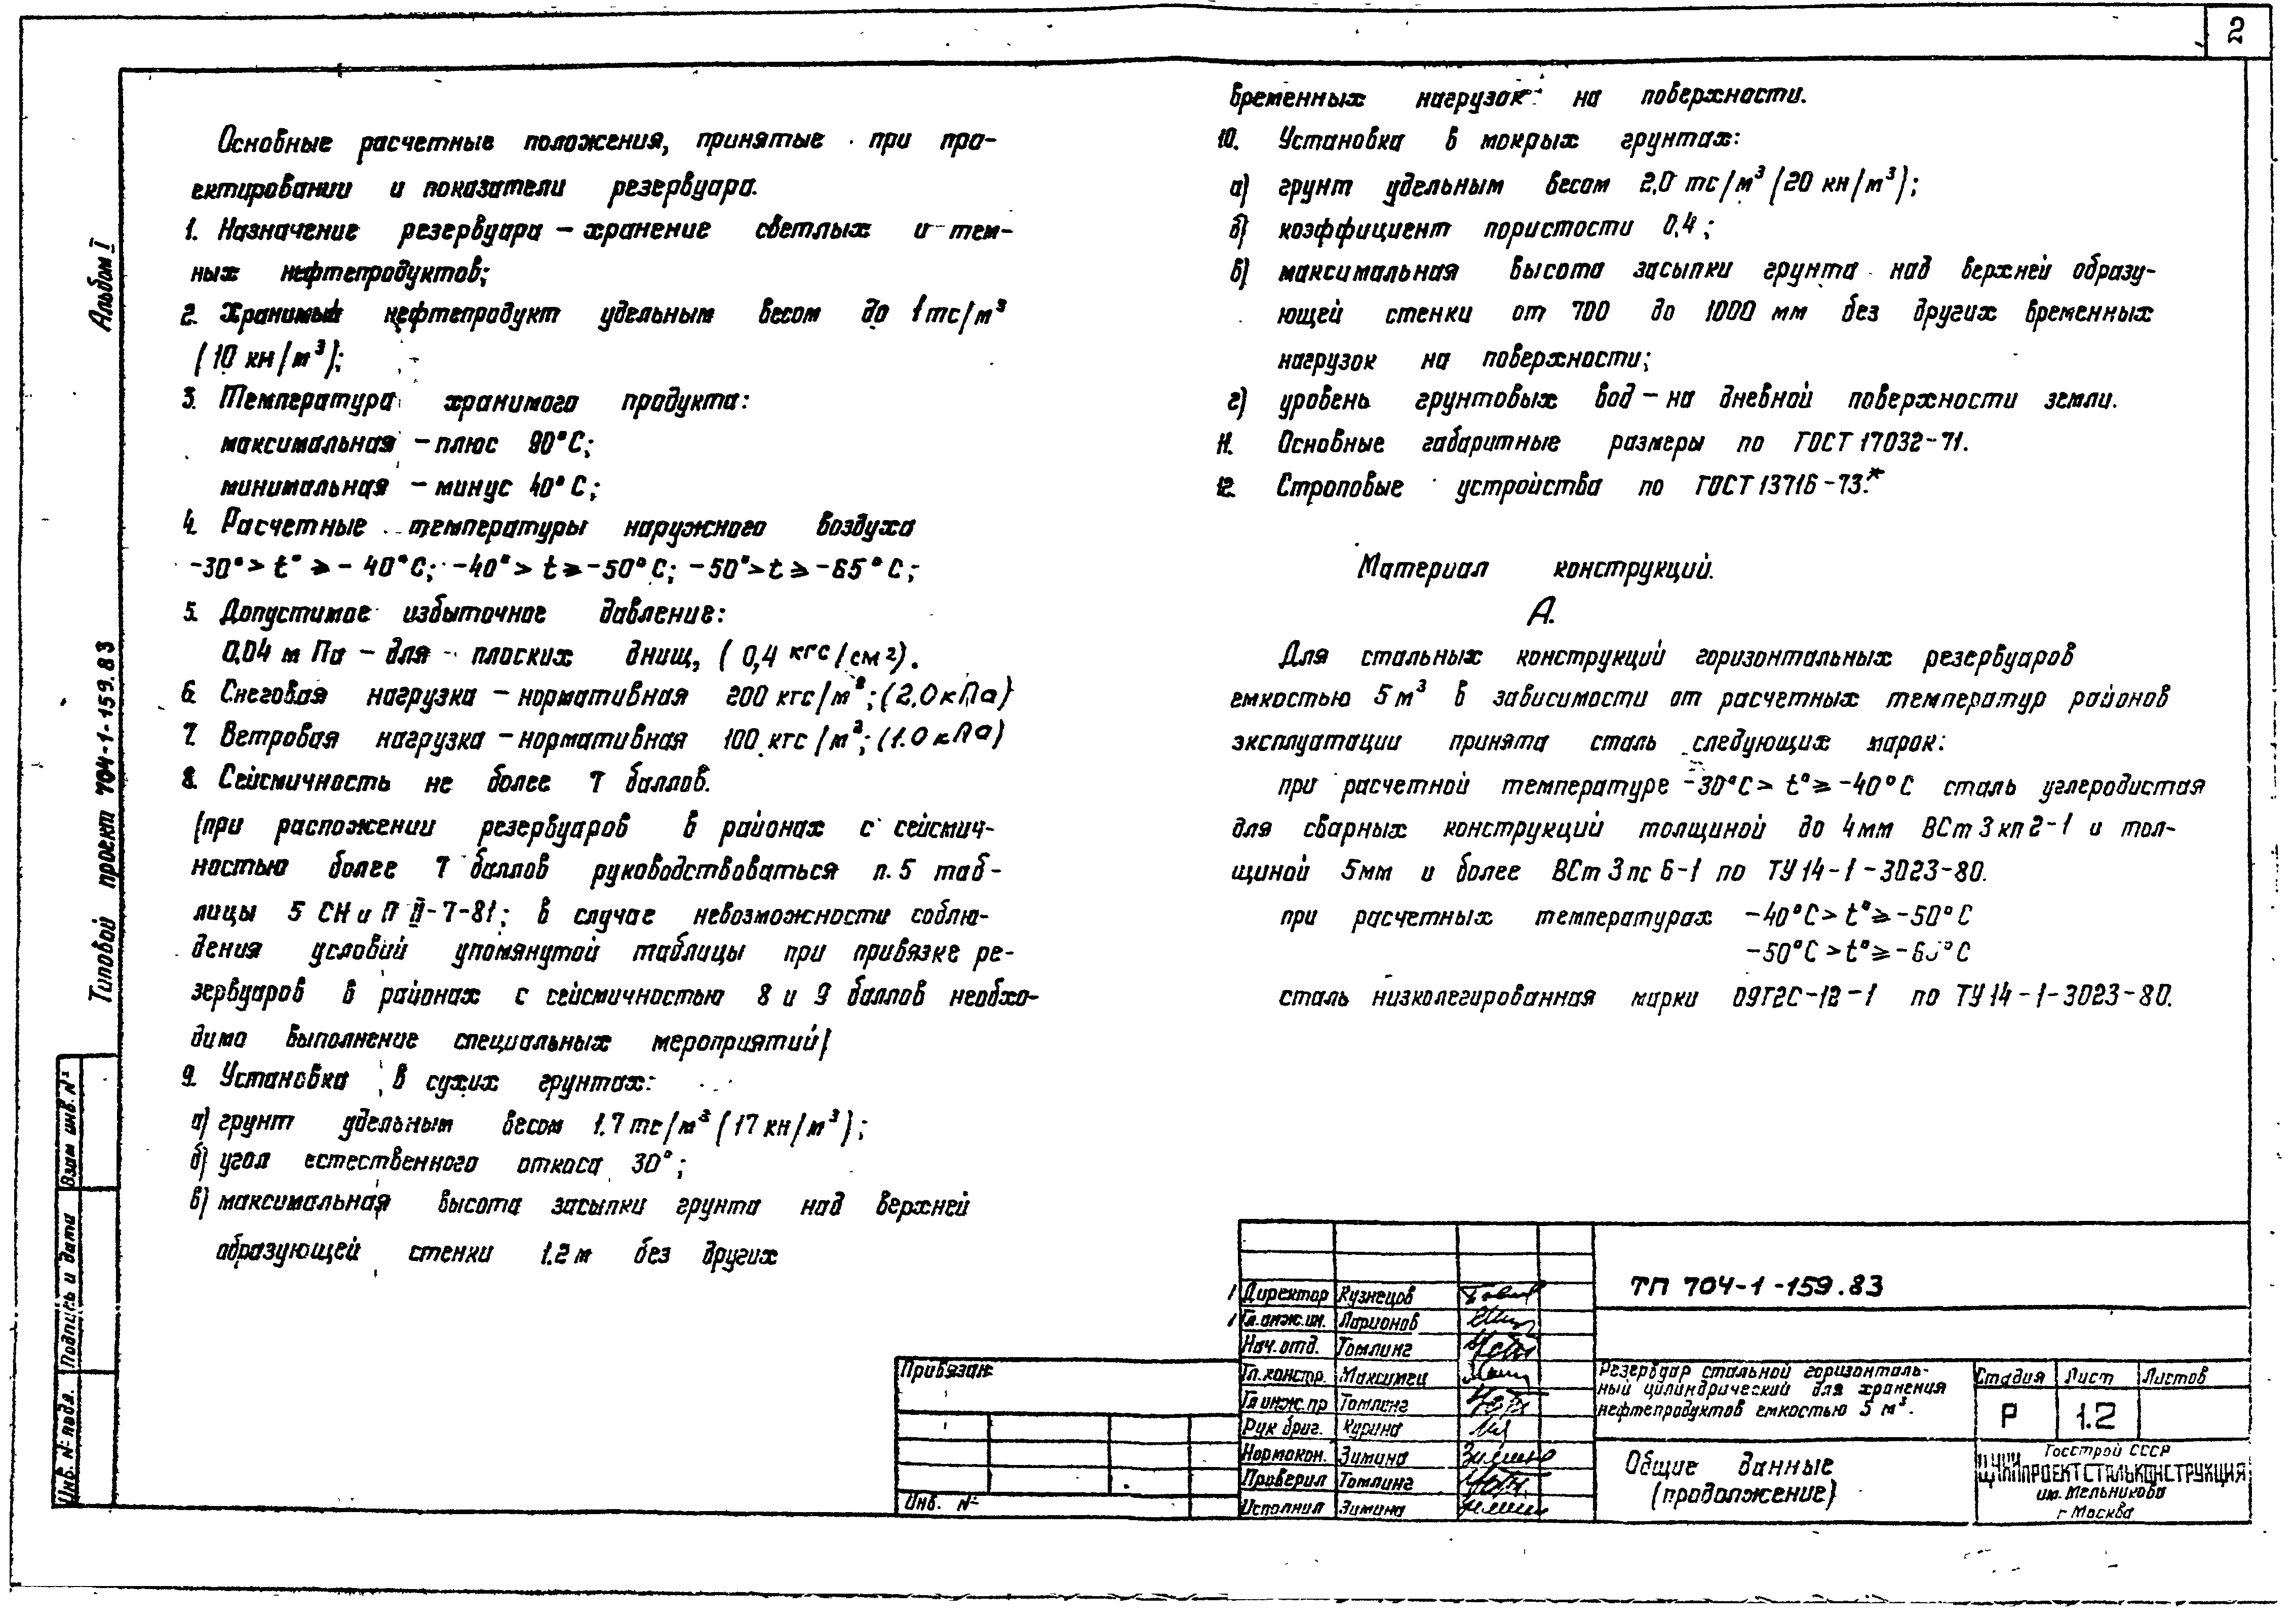 2
Альбом I
Типовой проект 704-1-159.83
Основные расчетные положения, принятые при про-
ектировании и показатели резервуара.
1. Назначение резервуара – хранение светлых и тем-
ных нефтепродуктов;
2. Хранимый нефтепродукт удельным весом до 1 тс/м³
(10 кн/м³);
3. Температура хранимого продукта:
максимальная – плюс 90°С;
минимальная – минус 40°С;
4. Расчетные температуры наружного воздуха
-30°> t° ⩾ - 40°С; -40°> t ⩾ -50°С; -50°> t ⩾ -65°С;
5. Допустимое избыточное давление:
0,04 м Па – для плоских днищ, (0,4 кгс/см²).
6. Снеговая нагрузка – нормативная 200 кгс/м²; (2.0 кПа)
7. Ветровая нагрузка – нормативная 100 кгс/м²; (1.0 кПа)
8. Сейсмичность не более 7 баллов.
(при распожении резервуаров в районах с сейсмич-
ностью более 7 баллов руководствоваться п. 5 таб-
лицы 5 СНиП II-7-81; в случае невозможности соблю-
дения условий упомянутой таблицы при привязке ре-
зервуаров в районах с сейсмичностью 8 и 9 баллов необхо-
димо выполнение специальных мероприятий)
9. Установка в сухих грунтах:
а) грунт удельным весом 1.7 тс/м³ (17 кн/м³);
б) угол естественного откоса 30°;
в) максимальная высота засыпки грунта над верхней
образующей стенки 1.2 м без других
временных нагрузок на поверхности.
10. Установка в мокрых грунтах:
а) грунт удельным весом 2,0 тс/м³ (20 кн/м³);
б) коэффициент пористости 0,4;
в) максимальная высота засыпки грунта над верхней образу-
ющей стенки от 700 до 1000 мм без других временных
нагрузок на поверхности;
г) уровень грунтовых вод – на дневной поверхности земли.
11. Основные габаритные размеры по ГОСТ 17032-71.
12. Строповые устройства по ГОСТ 13716-73.*
Материал конструкций.
А.
Для стальных конструкций горизонтальных резервуаров
емкостью 5 м³ в зависимости от расчетных температур районов
эксплуатации принята сталь следующих марок:
при расчетной температуре -30°С > t° ⩾ -40°С сталь углеродистая
для сварных конструкций толщиной до 4 мм ВСт 3 кп 2-1 и тол-
щиной 5 мм и более ВСт 3 пс 6-1 по ТУ 14-1-3023-80.
при расчетных температурах -40°С > t° ⩾ -50°С
-50°С > t° ⩾ -65°С
сталь низколегированная марки 09Г2С-12-1 по ТУ 14-1-3023-80.
Взам инв. №
Подпись и дата
Инв. № подл.
Привязан
Инв. №
Директор Кузнецов
Гл.инж.ин. Ларионов
Нач. отд. Томлинг
Гл. констр. Максимец
Гл инж. пр Томлинг
Рук бриг. Курина
Нормокон. Зимина
Проверил Томлинг
Исполнил Зимина
ТП 704-1-159.83
Резервуар стальной горизонталь-
ный цилиндрический для хранения
нефтепродуктов емкостью 5 м³.
Стадия Лист Листов
Р 1.2
Общие данные
(продолжение)
Госстрой СССР
ЦНИИПРОЕКТСТАЛЬКОНСТРУКЦИЯ
им. Мельникова
г Москва